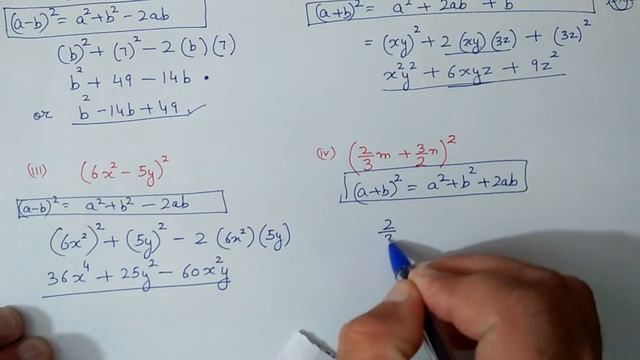 (a-b)² = a² + b² - 2ab
(b)² + (7)² - 2(b)(7)
b² + 49 - 14b .
or b² - 14b + 49
(a+b)² = a² + 2ab + b
= (xy)² + 2(xy)(3z) + (3z)²
x²y² + 6xyz + 9z²
(iii) (6x² - 5y)²
(a-b)² = a² + b² - 2ab
(6x²)² + (5y)² - 2(6x²)(5y)
36x⁴ + 25y² - 60x²y
(iv) (2/3 m + 3/2 n)²
(a+b)² = a² + b² + 2ab
2/3